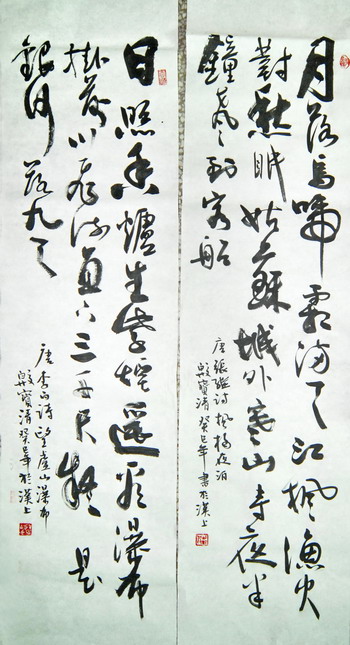 月落烏啼霜满天江楓漁火
對愁眠姑蘇城外寒山寺夜半
鐘聲到客船
唐張繼詩楓橋夜泊
殷寶清癸巳年書於漢上
日照香爐生紫煙遥看瀑布
掛前川飛流直下三千尺疑是
銀河落九天
唐李白詩望廬山瀑布
殷寶清癸巳年於漢上